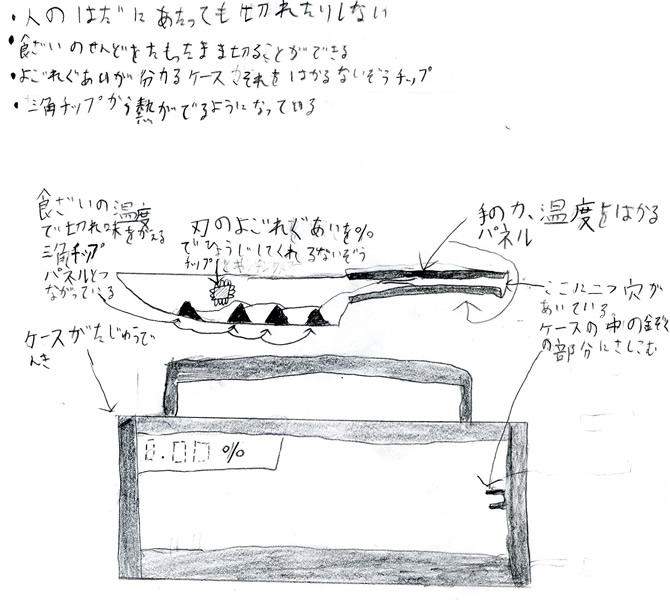 ・人のはだにあたっても切れたりしない
・食ざいのせんどをたもったまま切ることができる
・よごれぐあいが分かるケースさそれをはかるないぞうチップ
・三角チップから熱がでるようになって切る
食ざいの温度
で切れ味をかえる
三角チップ
パネルとつ
ながっている
刃のよごれぐあいを%
でひょうじしてくれるないぞう
チップ
手の力、温度をはかる
パネル
ここに二つ穴が
あいている
ケースの中の
の部分にさしこむ
ケースがたじゅうで
んき
0.00 %